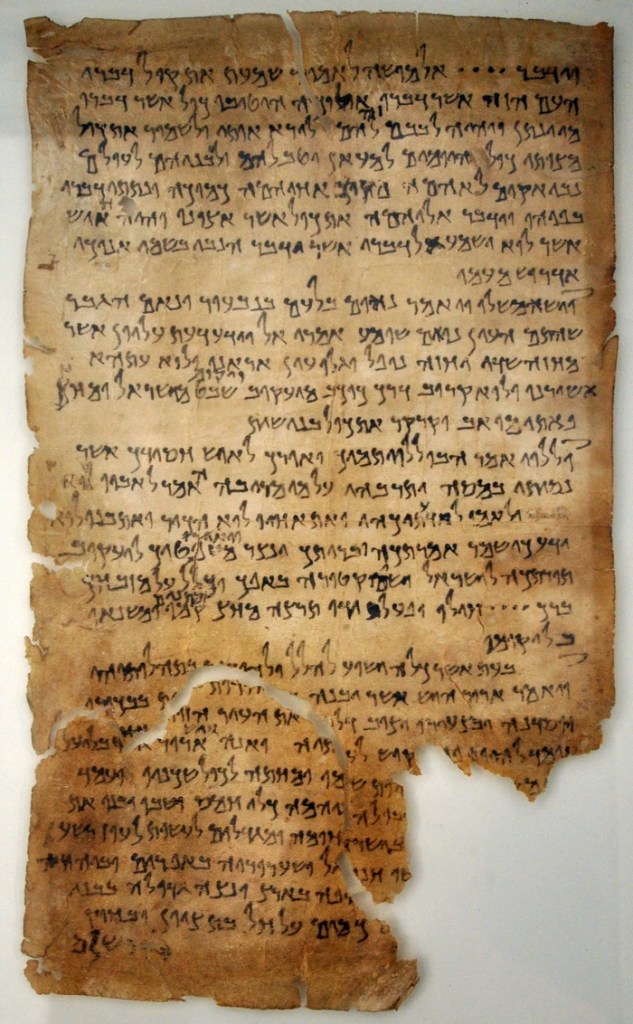 וידבר •••• אל מושה לאמור שמעת את קול דברי
העם הזה אשר דברו אליכה היטיבו כול אשר דברו
מי ינתן ויהיה לבבם זה להם לירא אותי ולשמור את כול
מצותי כול היומים למעאן יטב להם ולבניהם לעולם
נבי אקים לאהמה מקרב אחיהמה כמוכה ונתתי דברי
בפיהו וידבר אליהמה את כול אשר אצונו והיה האיש
אשר לוא ישמע אל דברי אשר ידבר הנבי בשמי אנוכי
אדרוש מעמו
וישא משלו ויאמר נאום בלעם בנבעור ונאם הגבר
שהתם העין נואם שומע אמרי אל וידע דעת עליון אשר
מחזה שדי יחזה נופל וגלו עין אראנו ולוא עתהא
אשורנו ולוא קרוב דרך כוכב מיעקוב ויקום שבט מישראל ומחץ
פאתי מואב וקרקר את כול בני שית
וללוי אמר הבו ללוי תמיך ואורך לאיש חסידך אשר
נסיתו במסה ותרבהו על מי מריבה האמר לאביו לוא
ולאמו לוא ידעתיהו ואת אחיו לוא הכיר ואת בנו לוא
ידע כי שמר אמרתכה ובריתך ינצר ויאירו משפטיך ליעקוב
תורתכה לישראל ישים קטורה באפך וכליל על מזבחך
ברך •••• חילו ופעל ידו תרצה מחץ מתנים קמו ומשנאו
בל יקומו
בעת אשר כלה ישוע להלל ולהודות בתהלותיהו
ויאמר ארור היש אשר יבנה את העיר הזות בבכורו
ייסדנה ובצעירו יציב דלתיה ואנה איש ארור אחד בליעל
עומד להיות יקוש לעמו ומחתה לכול שכניו ועמד
המה כלי חמס ושבו ובנו את
חומה ומגדלים לעשות לעוז רשע
ושערוריה באפרים וביהודה
בארץ ונצה גדולה בבני
כמים על חל בת ציון ובחוק
ירושלם